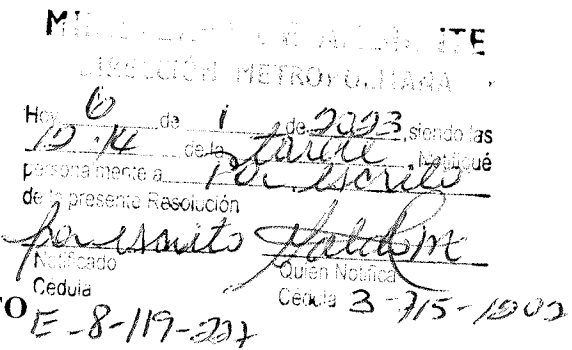 MI
TE
DIRECCIÓN METROPOLITANA
Hoy 6 de 1 de 2023, siendo las
12:14 de la tarde, Notifiqué
personalmente a Por escrito
de la presente Resolución
por escrito
Notificado Quien Notifica
Cedula Cédula 3-715-1202
TO E-8-119-227